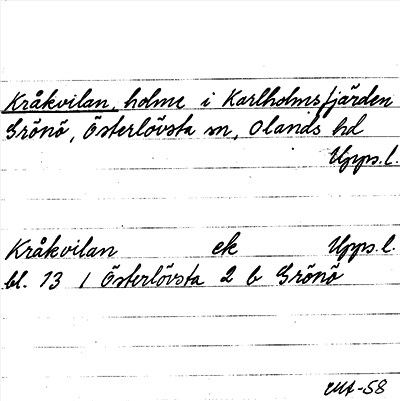 Kråkvilan, holme i Karlholmsfjärden
Grönö, Österlövsta sn, Olands hd
Upps.l.
Kråkvilan ek Upps.l.
bl. 13 1 Österlövsta 2 b Grönö
-58